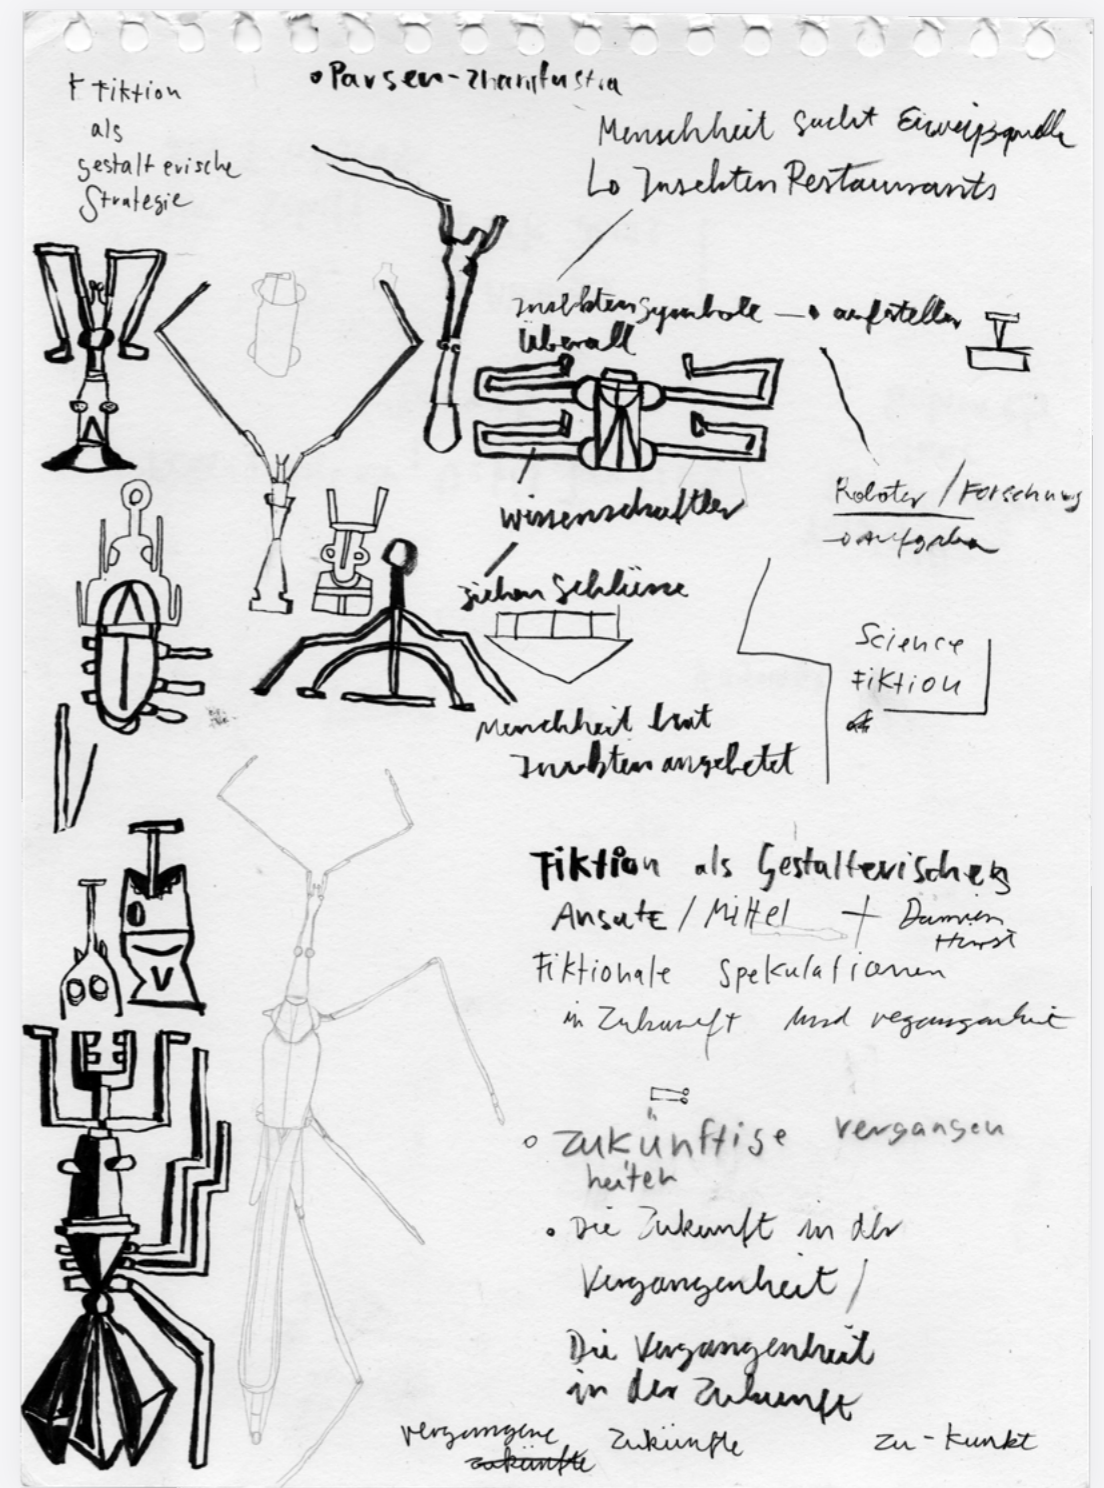 Fiktion
als
gestalterische
Strategie
Parsen-
Menschheit sucht Eiweißquelle
Lo Insekten Restaurants
Insektensymbole → aufstellen
Überall
wissenschaftler
ziehen Schlüsse
Roboter / Forschung
→ Aufgaben
Science
Fiktion
Menchheit hat
Insekten angebetet
Fiktion als Gestalterisches
Ansatz / Mittel + Damien
Hirst
Fiktionale Spekulationen
in Zukunft und vegangenheit
zukünftige vergangen
heiten
Die Zukunft in der
Vergangenheit /
Die Vergangenheit
in der Zukunft
vergangene Zukünfte
zukünfte
zu-kunkt